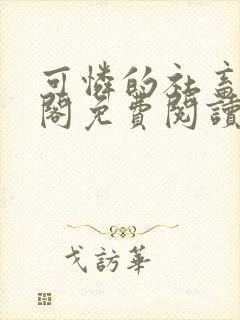 可憐的社畜
閣免費閱讀
戈訪華